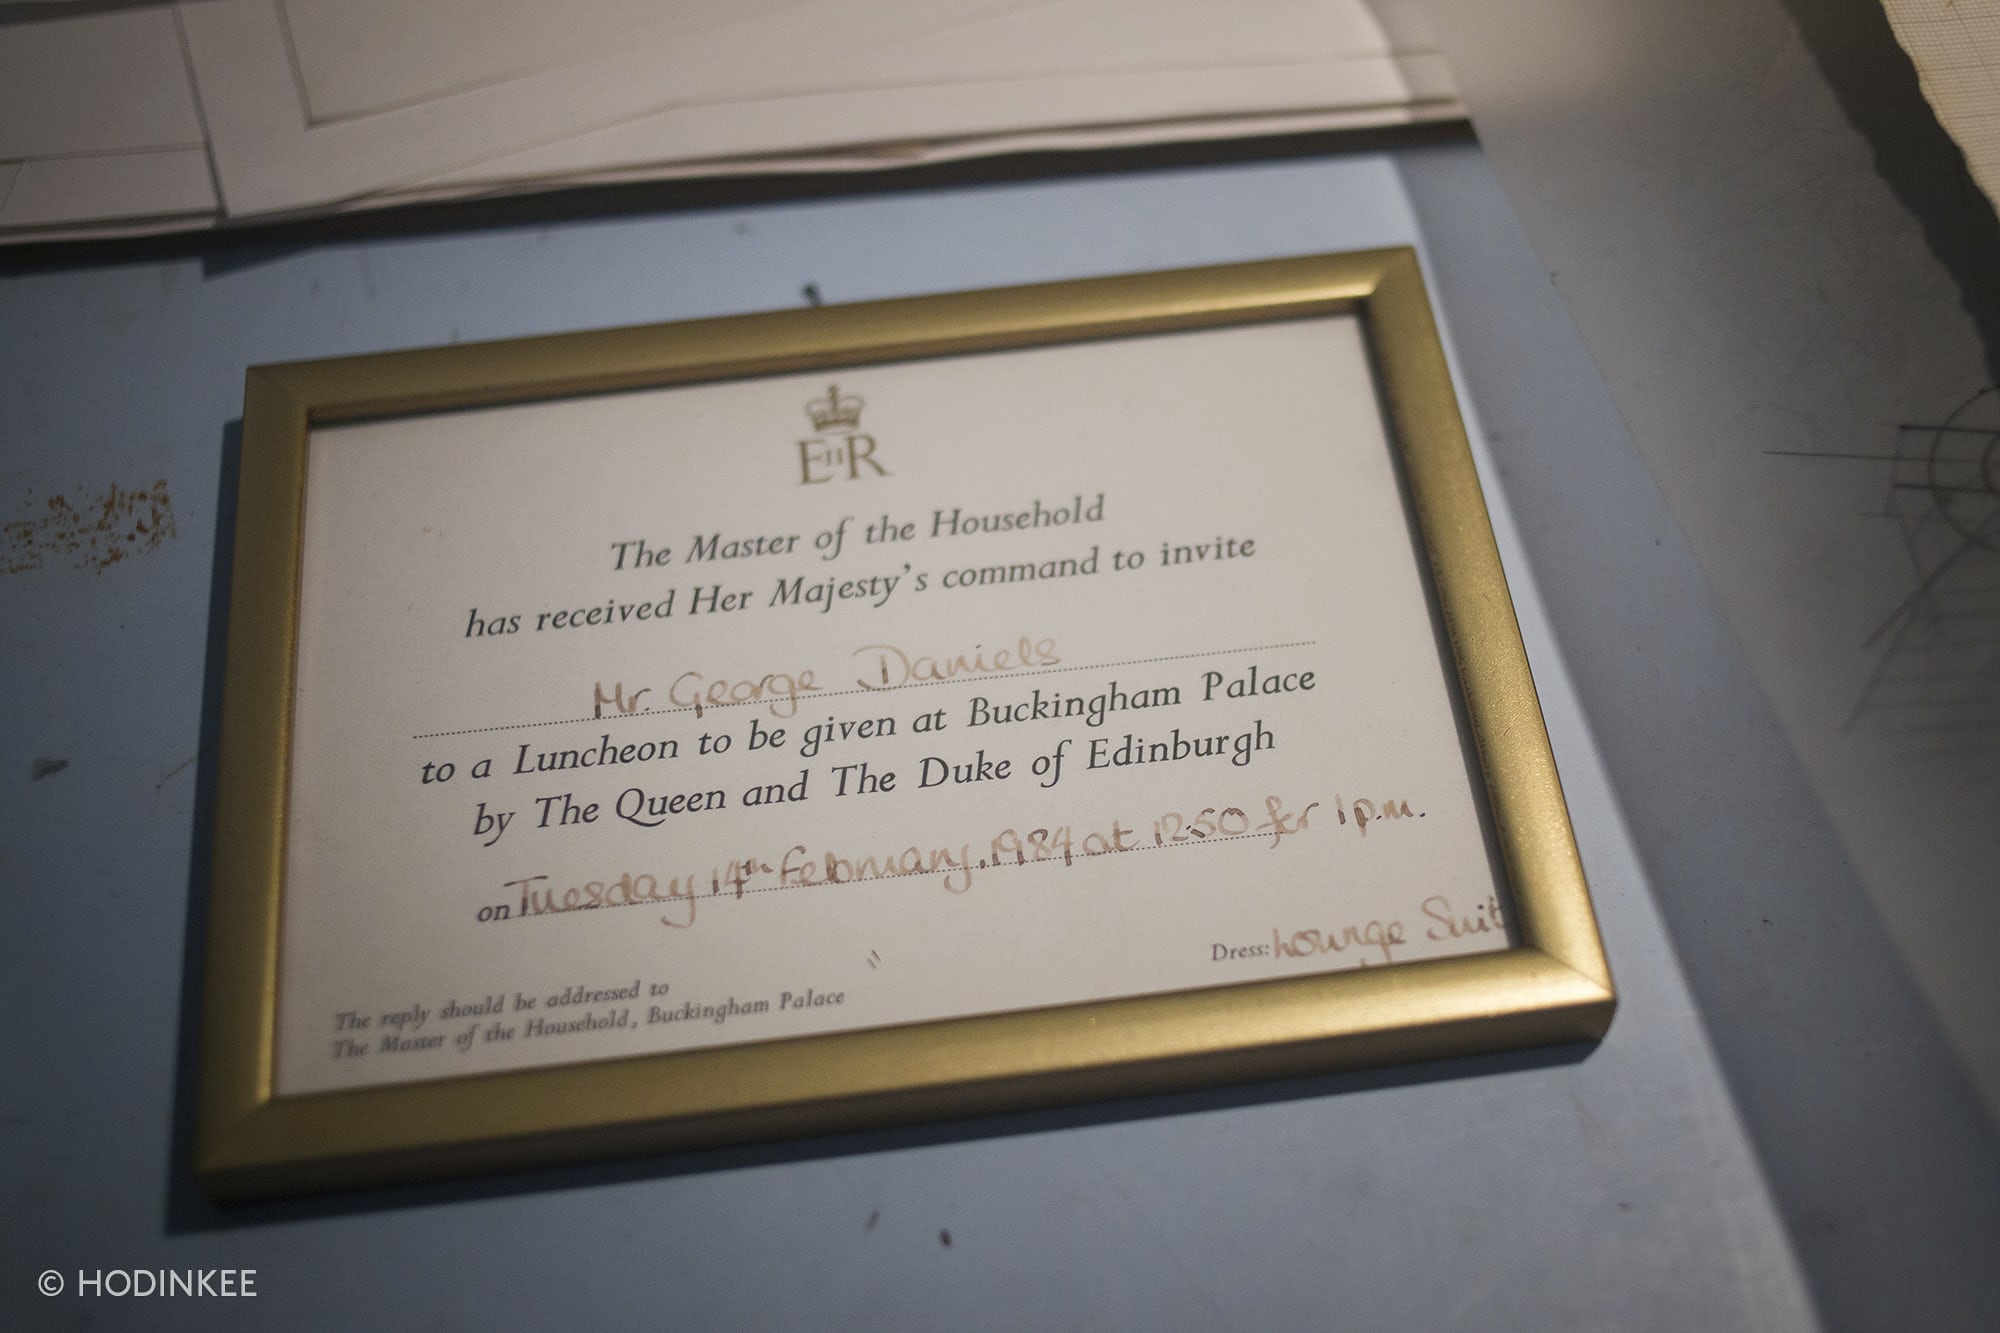 EIIR
The Master of the Household
has received Her Majesty's command to invite
Mr. George Daniels
to a Luncheon to be given at Buckingham Palace
by The Queen and The Duke of Edinburgh
on Tuesday 14th February, 1984 at 12.50 for 1 p.m.
Dress: Lounge Suit
The reply should be addressed to
The Master of the Household, Buckingham Palace
© HODINKEE